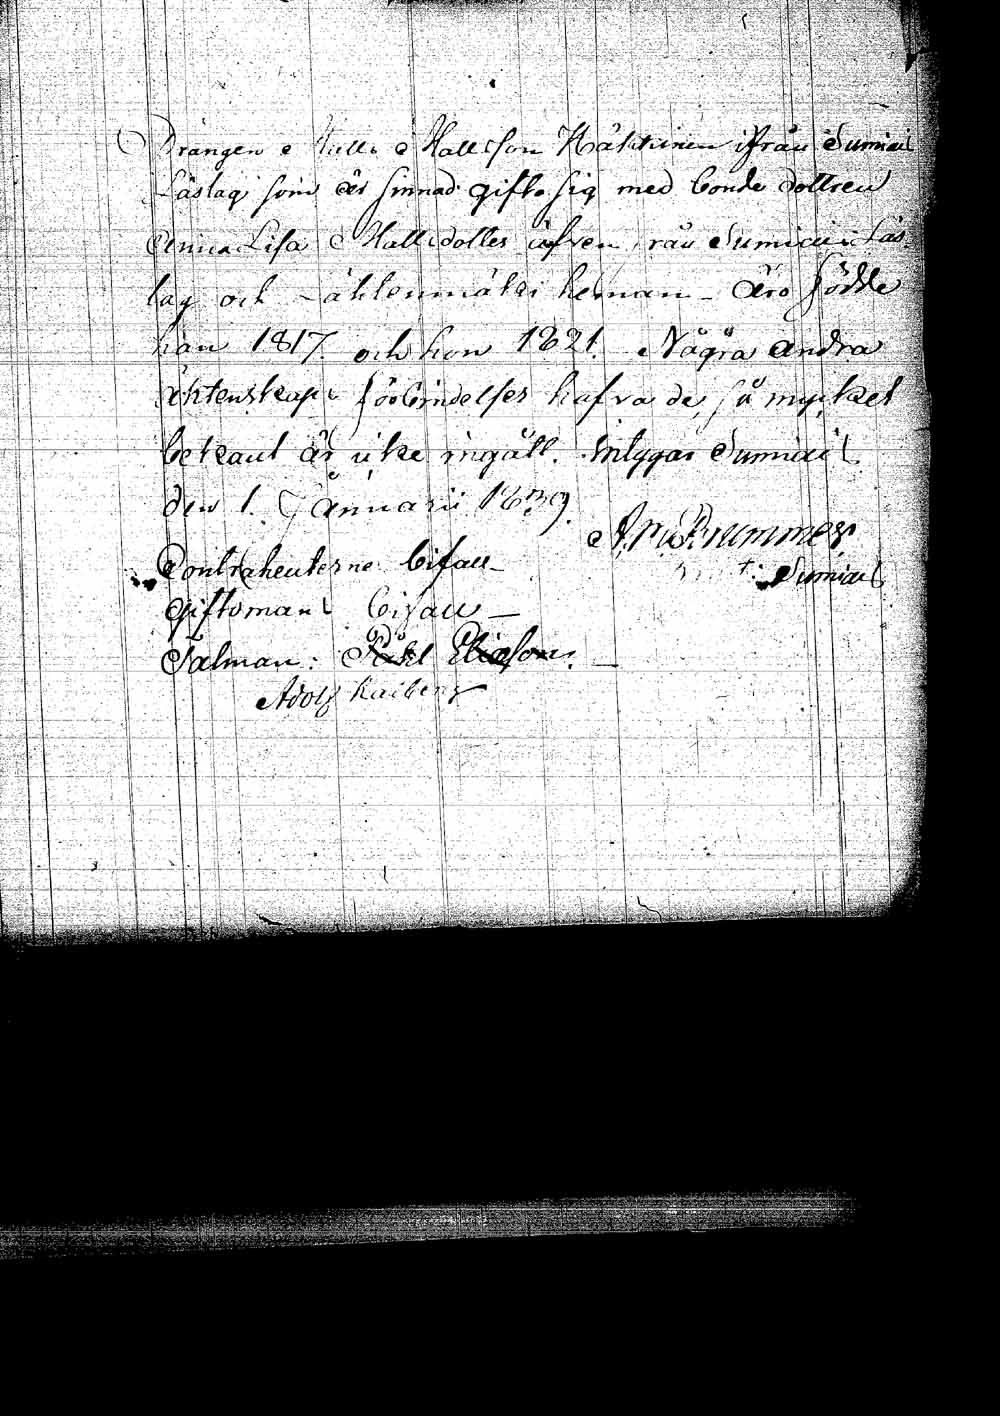 Drängen Matts Mattsson Häkkinen ifrån Sumiais
Läslag som är sinnad gifta sig med bonde dottren
Anna Lisa Matts dotter äfven från Sumiais Läs-
lag och heman - äro födde
han 1817. och hon 1821. Några andra
äktenskaps förbindelser hafva de, så mycket
bekant är icke ingått. intygas Sumiais
den 1. Januarii 1839.
Brummer
Sumiais
Contrahenterne bifall
giftomans bifall —
Talman: Eliasson. —
Adolf